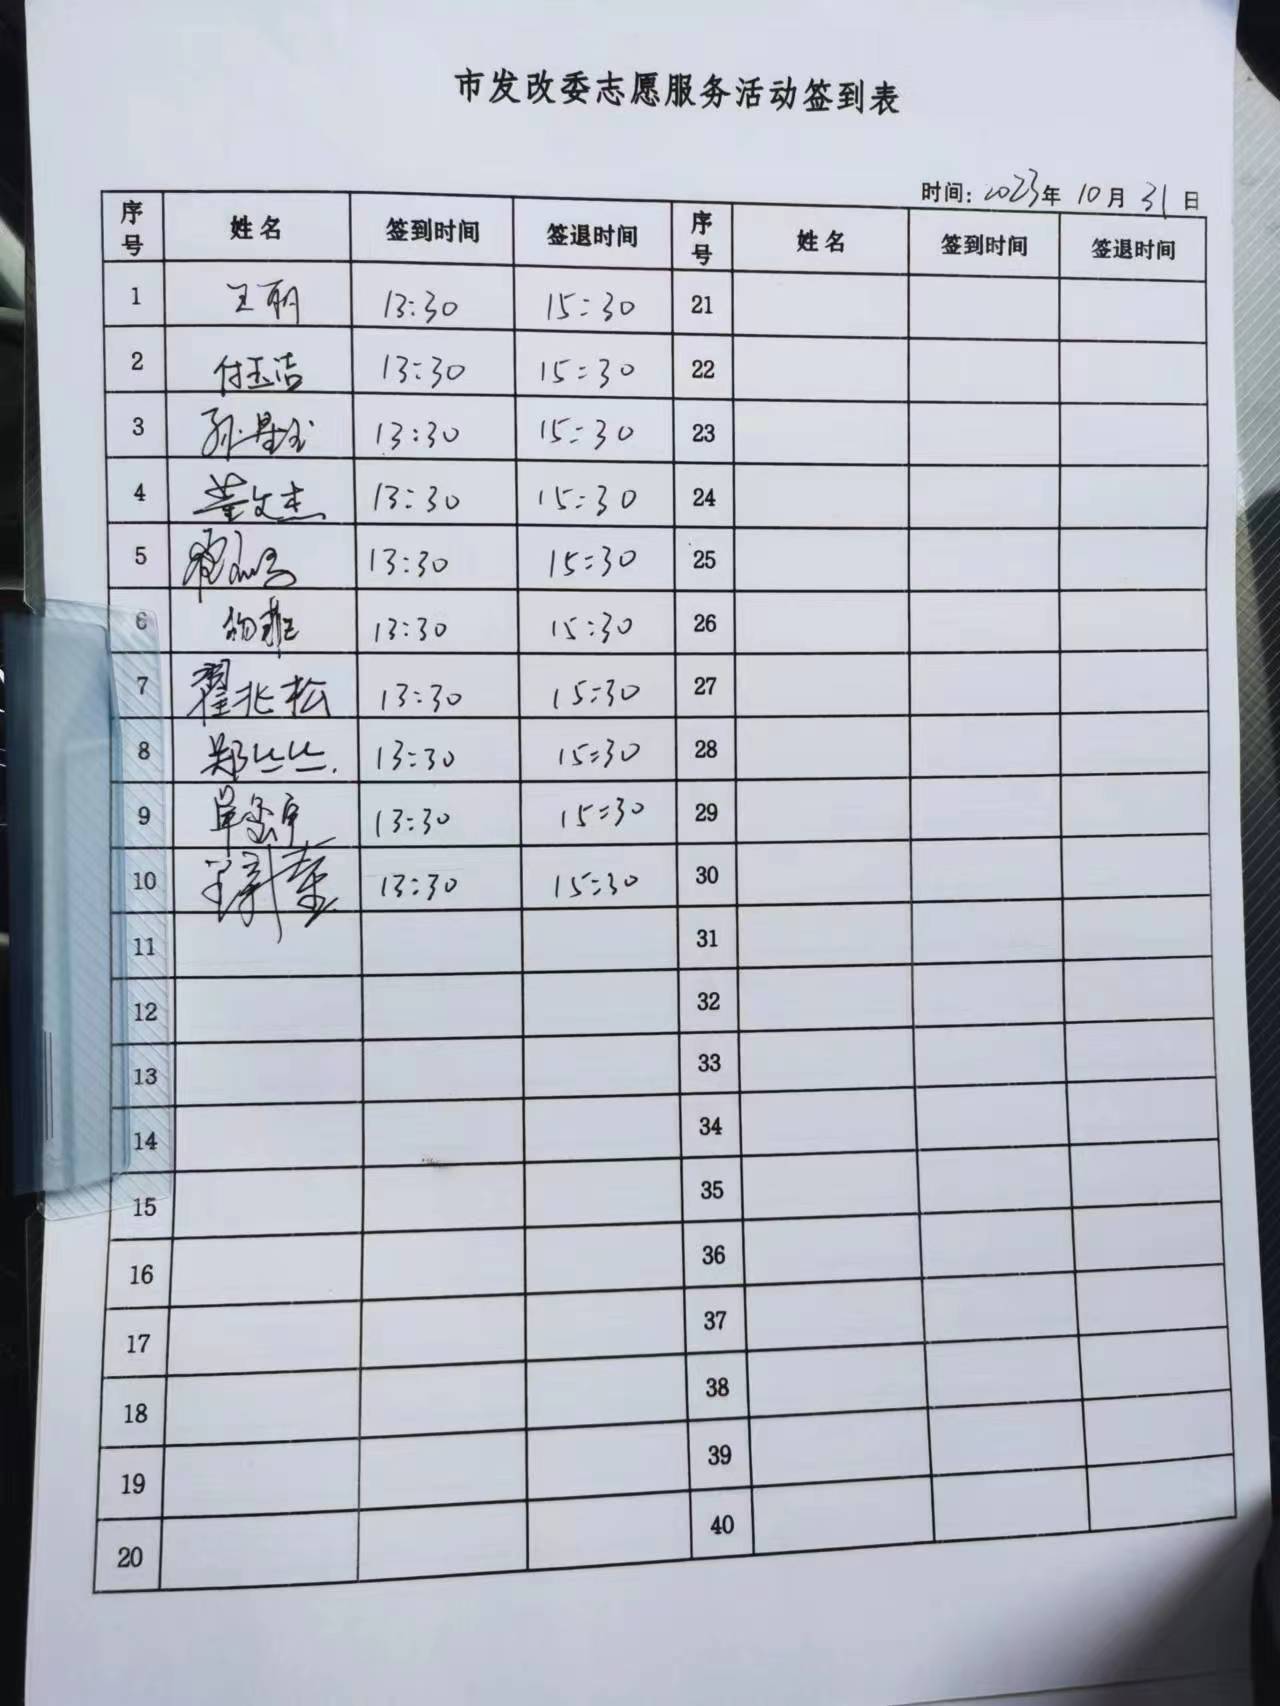 市发改委志愿服务活动签到表
时间：2023年 10月 31日
序号 姓名 签到时间 签退时间 序号 姓名 签到时间 签退时间
1 王丽 13:30 15:30 21
2 付玉洁 13:30 15:30 22
3 13:30 15:30 23
4 董文杰 13:30 15:30 24
5 13:30 15:30 25
6 13:30 15:30 26
7 翟兆松 13:30 15:30 27
8 郑丝丝 13:30 15:30 28
9 13:30 15:30 29
10 13:30 15:30 30
11 31
12 32
13 33
14 34
15 35
16 36
17 37
18 38
19 39
20 40